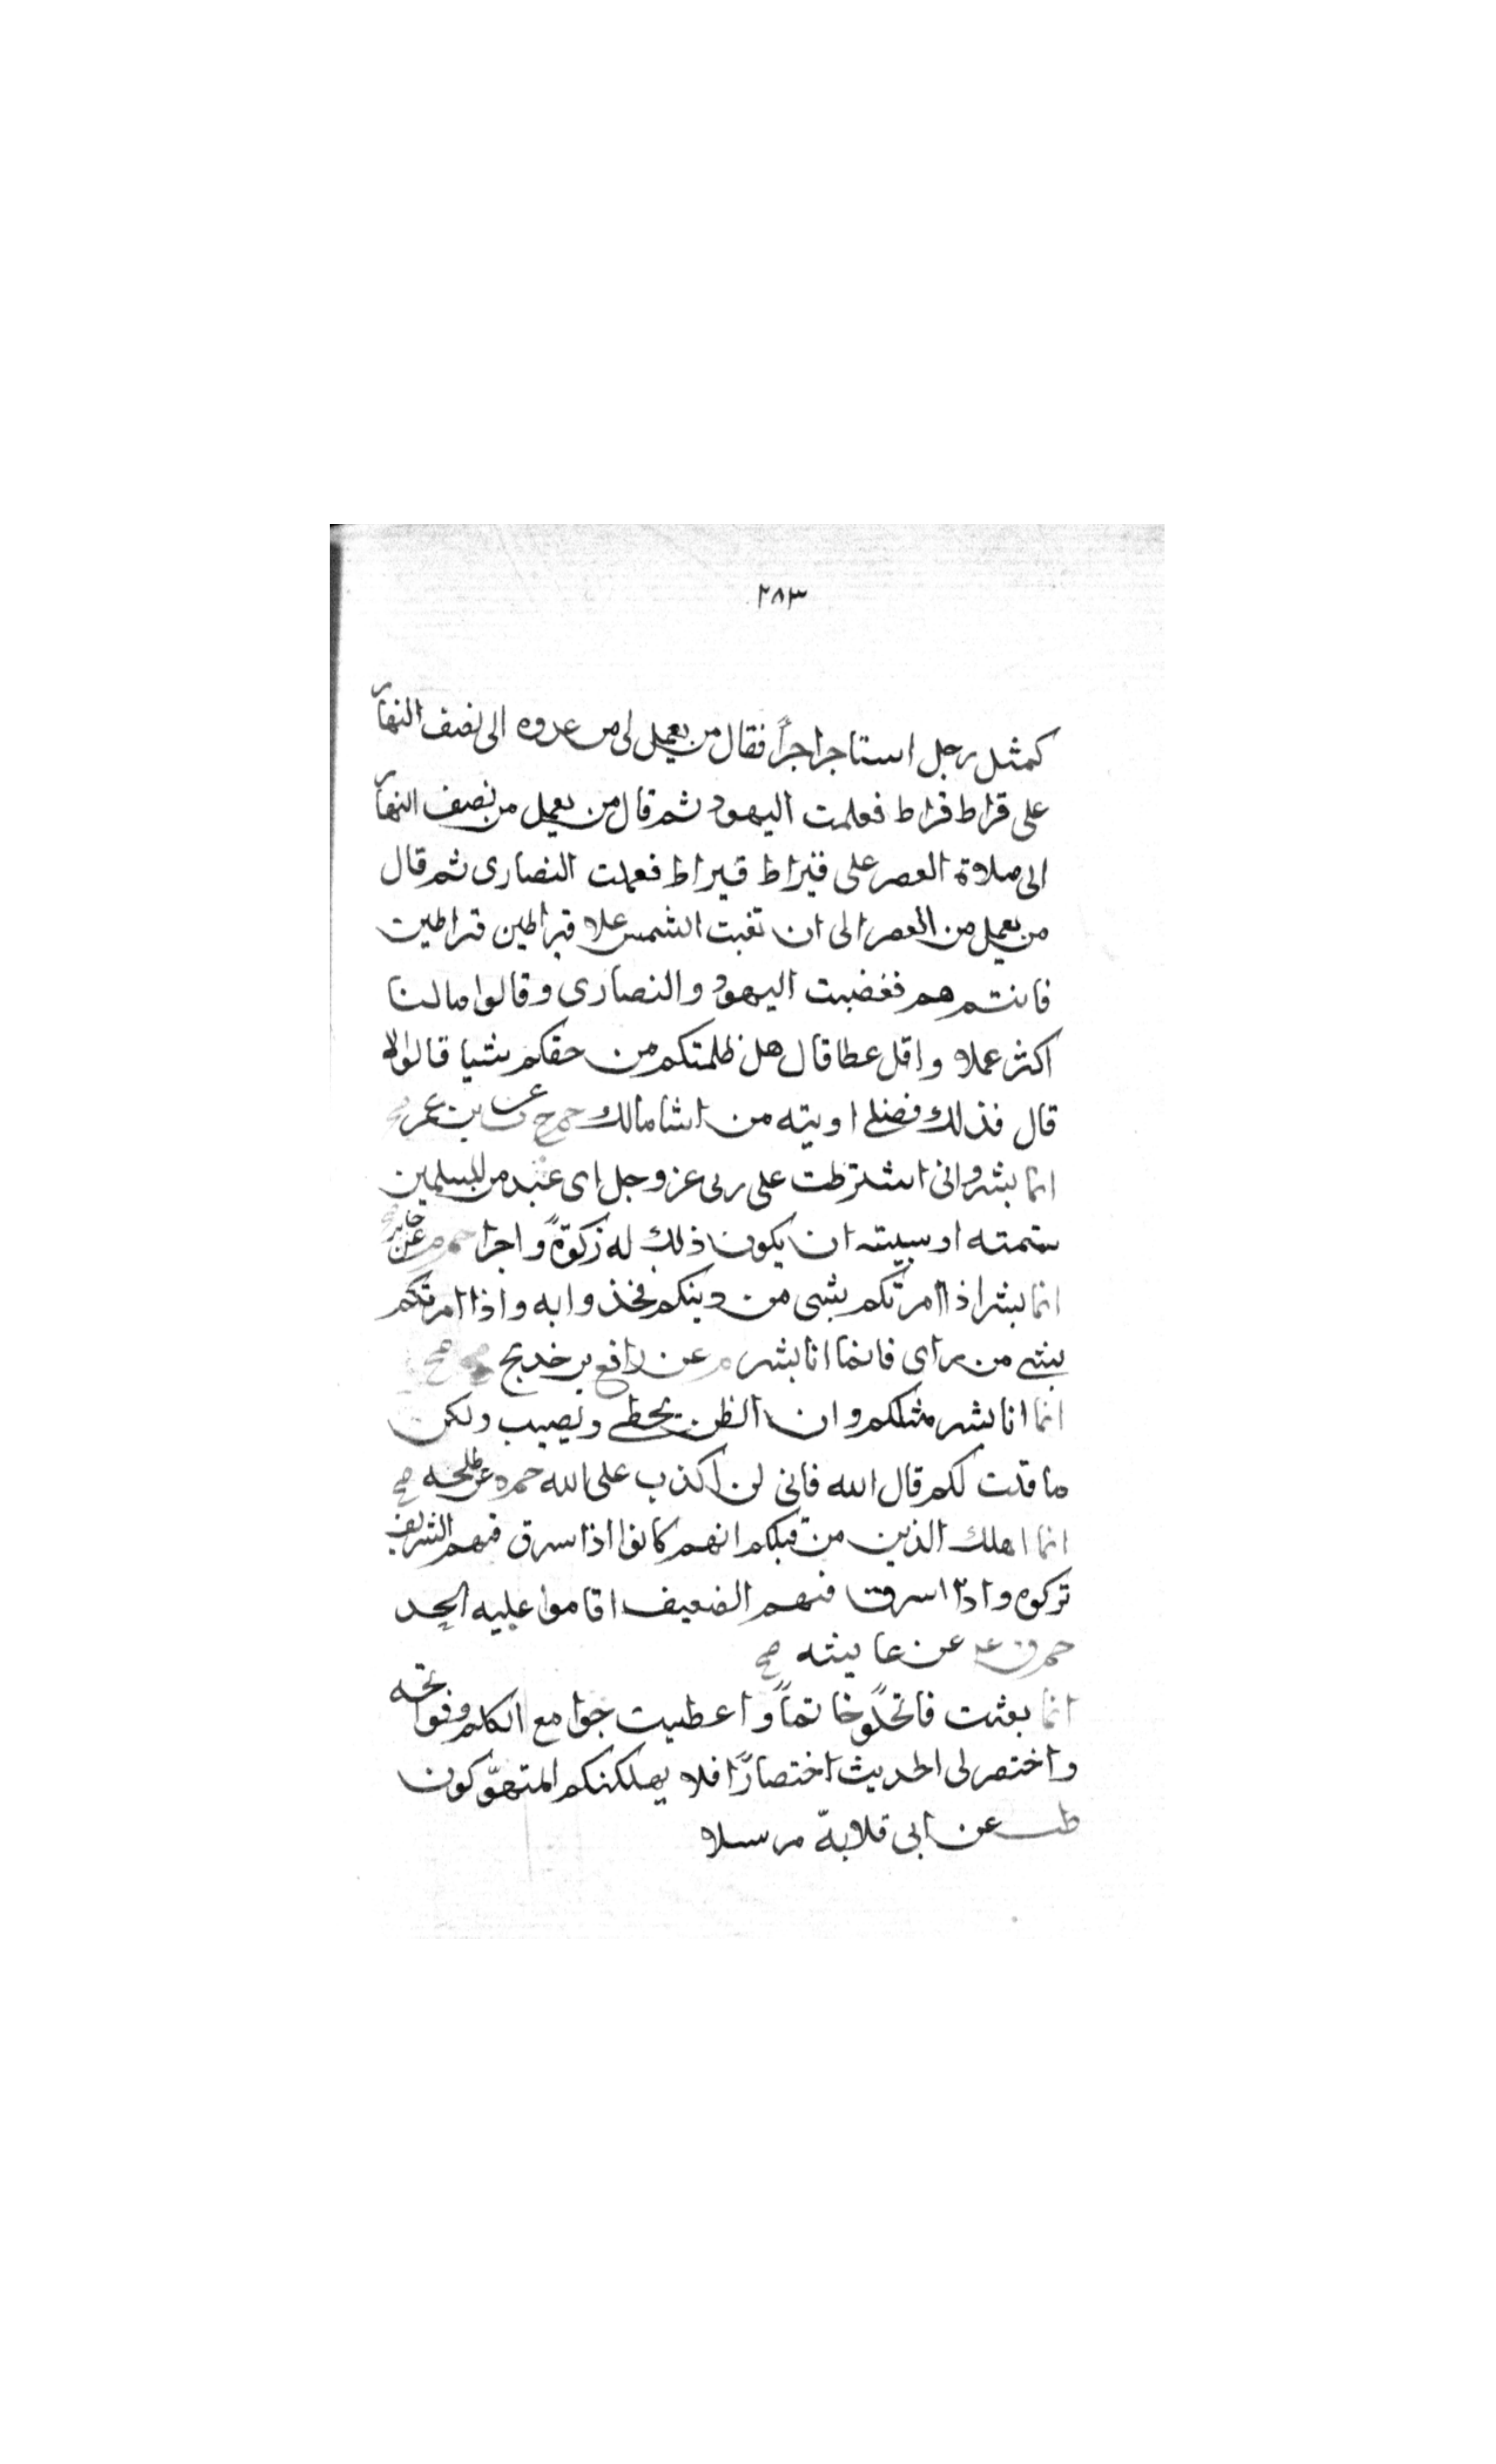 ٢٨٣
كمثل رجل استاجر اجرآً فقال من يعمل لى من غدوه الى نصف النهار
على قراط قراط فعلمت اليهود ثم قال من يعمل من نصف النهار
الى صلاة العصر على قيراط قيراط فعملت النصارى ثم قال
من يعمل من العصر الى ان تغبت الشمس علا قيراطين قراطين
فانتم هم فغضبت اليهود والنصارى وقالوا مالنا
اكثر عملا واقل عطا قال هل ظلمتكم من حقكم شيا قالوا لا
قال فذلك فضلى اوتيه من اشا مالك حم خ ت عن ابن عمر
انما بشر وانى اشترطت على ربى عز وجل اى عبد من المسلمين
شتمته او سبيته ان يكون ذلك له زكوةً واجرا حم م عن جابر
انما بشر اذا امرتكم بشى من دينكم فخذوا به واذا امرتكم
بشى من راى فانما انا بشر م عن رافع بن خديج صح
انما انا بشر مثلكم وان الظن يخطى ويصيب ولكن
ما قلت لكم قال الله فانى لن اكذب على الله حم ه عن طلحه صح
انما اهلك الذين من قبلكم انهم كانوا اذا سرق فيهم الشريف
تركوه واذا سرق فيهم الضعيف اقاموا عليه الحد
حم ق عـ عن عايشه صح
انما بعثت فاتحاً وخاتماً واعطيت جوامع الكلم وفواتحه
واختصر لى الحديث اختصارًا فلا يهلكنكم المتهوّكون
طب عن ابى قلابة مرسلا